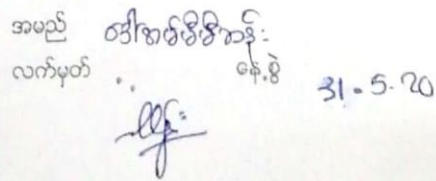 အမည် ဒေါ်အမ်စီစီဘန်း
လက်မှတ် နေ့စွဲ 31.5.20